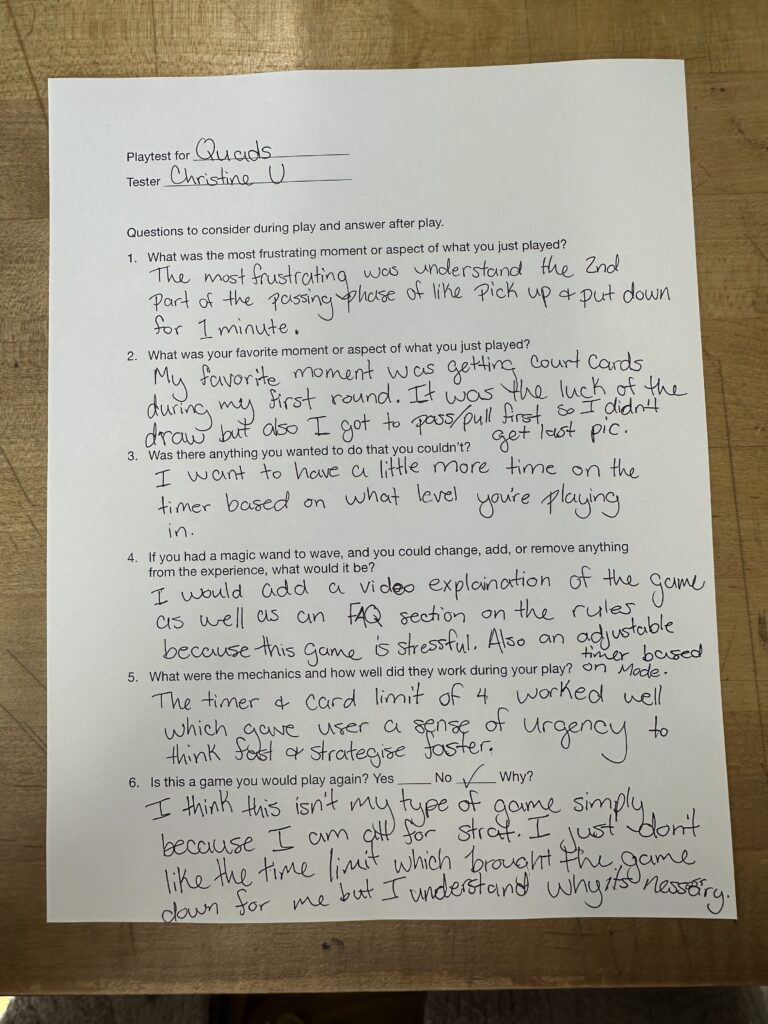 Playtest for Quads
Tester Christine U
Questions to consider during play and answer after play.
1. What was the most frustrating moment or aspect of what you just played?
The most frustrating was understand the 2nd
part of the passing phase of like pick up & put down
for 1 minute.
2. What was your favorite moment or aspect of what you just played?
My favorite moment was getting court cards
during my first round. It was the luck of the
draw but also I got to pass/pull first so I didn't
get last pic.
3. Was there anything you wanted to do that you couldn't?
I want to have a little more time on the
timer based on what level you're playing
in.
4. If you had a magic wand to wave, and you could change, add, or remove anything
from the experience, what would it be?
I would add a video explaination of the game
as well as an FAQ section on the rules
because this game is stressful. Also an adjustable
timer based
on Mode.
5. What were the mechanics and how well did they work during your play?
The timer & card limit of 4 worked well
which gave user a sense of urgency to
think fast & strategise faster.
6. Is this a game you would play again? Yes ____ No ✓ Why?
I think this isn't my type of game simply
because I am all for strat. I just don't
like the time limit which brought the game
down for me but I understand why its nessary.